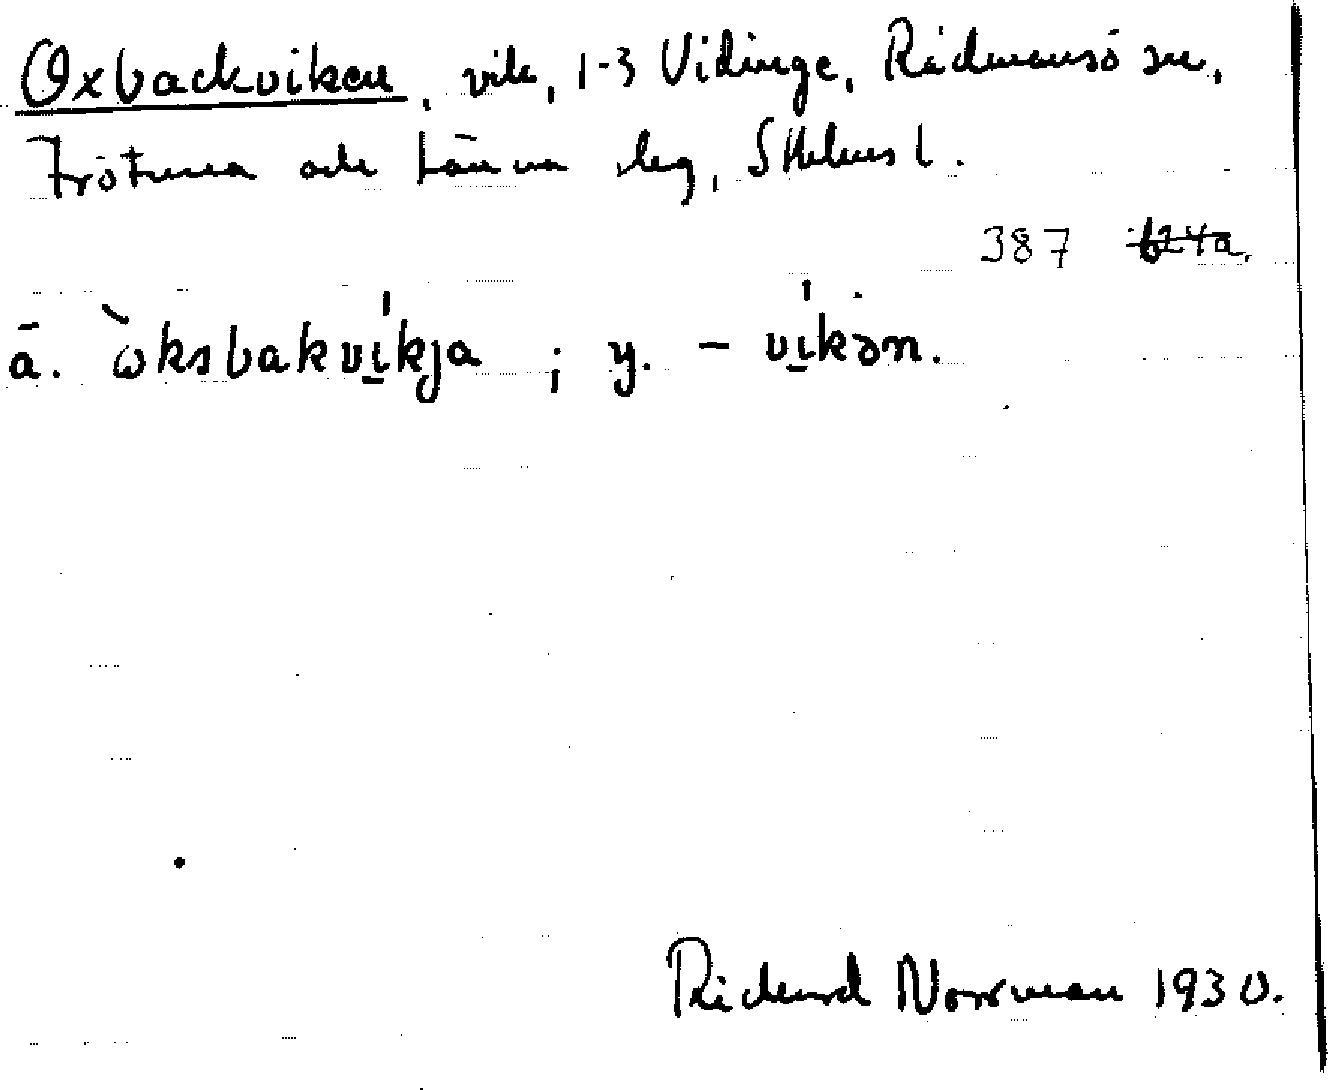 Oxbackviken, vik, 1-3 Vidinge, Rådmansö sn,
Frötuna och Länna slg, Sthlms l.
387 624a.
ä. òksbakvi̱kja ; y. – vi̱kən.
Richard Norrman 1930.